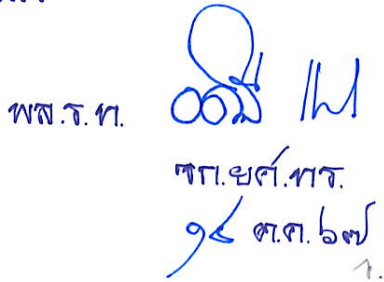 พล.ร.ท.
จก.ยศ.ทร.
๑๔ ต.ค. ๖๗